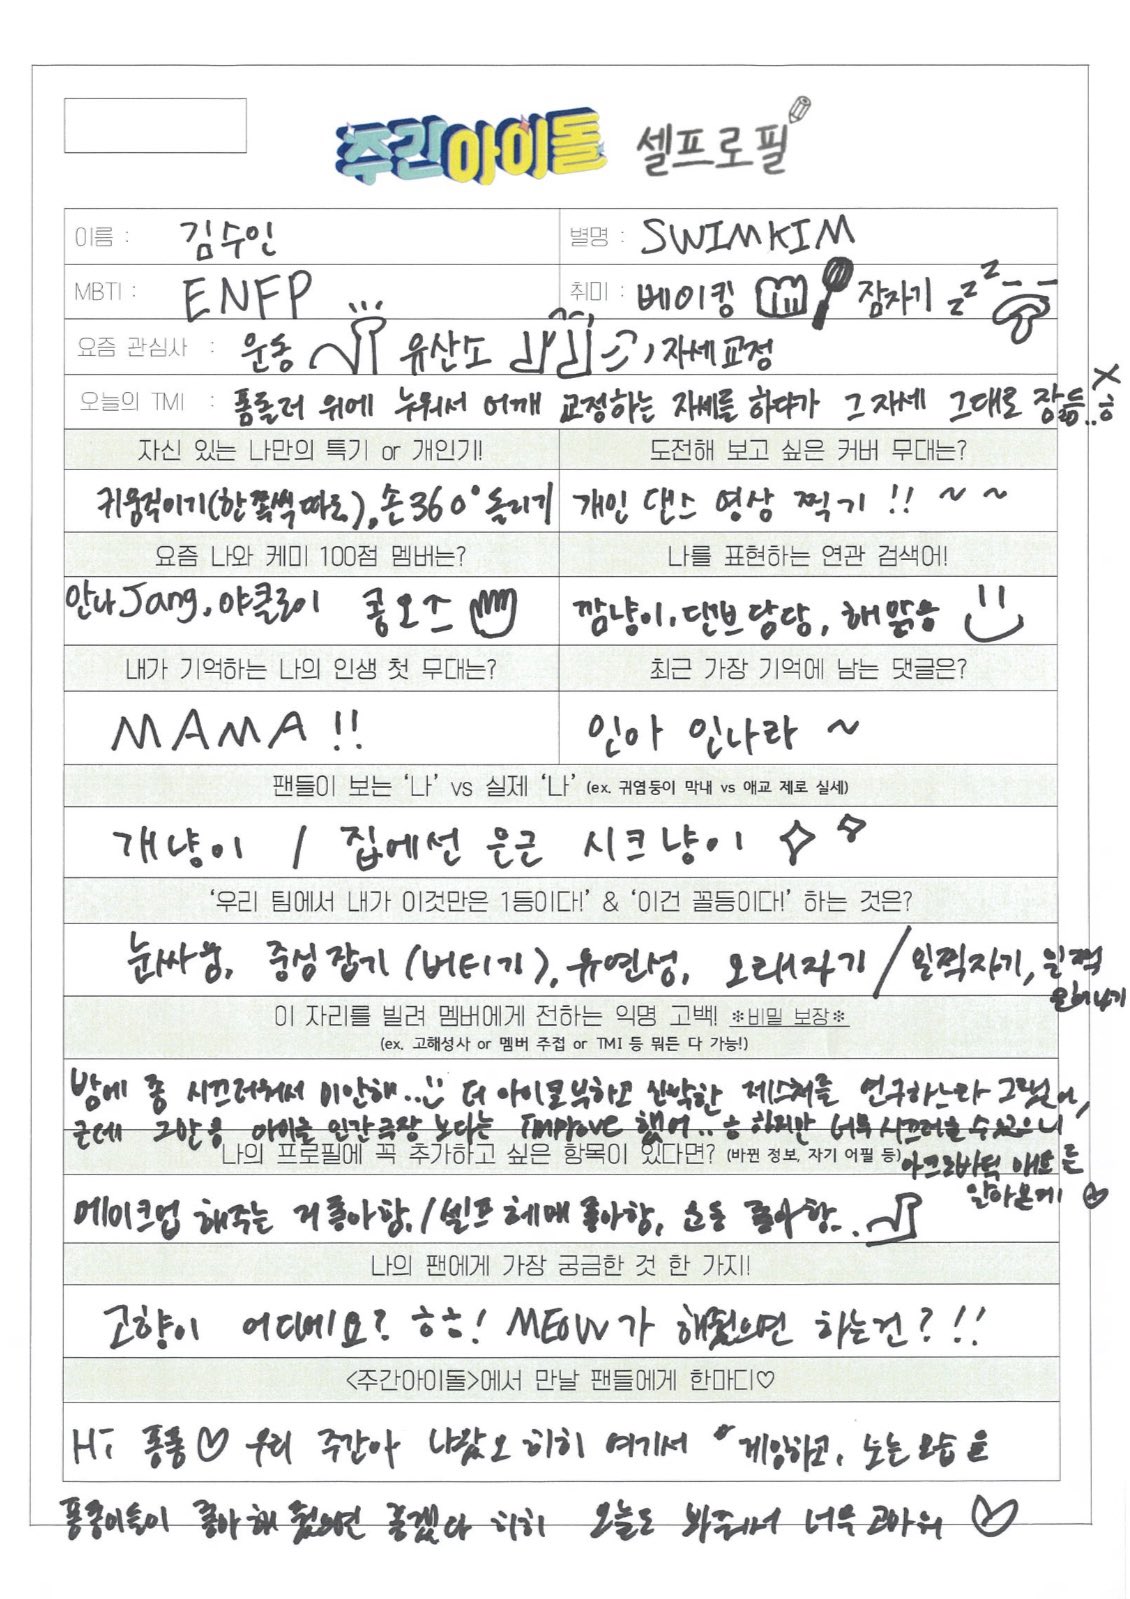 주간아이돌 셀프로필
이름 : 김수인 별명 : SWIMKIM
MBTI : ENFP 취미 : 베이킹 잠자기 zzz
요즘 관심사 : 운동 유산소 , 자세교정
오늘의 TMI : 폼롤러 위에 누워서 어깨 교정하는 자세를 하다가 그 자세 그대로 잠듦..ㅎ
자신 있는 나만의 특기 or 개인기! 도전해 보고 싶은 커버 무대는?
귀 움직이기(한 쪽씩 따로), 손 360° 돌리기 개인 댄스 영상 찍기 !! ~ ~
요즘 나와 케미 100점 멤버는? 나를 표현하는 연관 검색어!
안나 Jang, 야클로이 깜냥이, 댄브 담당, 해맑음
내가 기억하는 나의 인생 첫 무대는? 최근 가장 기억에 남는 댓글은?
MAMA !! 인아 인나라 ~
팬들이 보는 '나' vs 실제 '나' (ex. 귀염둥이 막내 vs 애교 제로 실세)
개냥이 / 집에선 은근 시크냥이
'우리 팀에서 내가 이것만은 1등이다!' & '이건 꼴등이다!' 하는 것은?
눈싸움, 중심 잡기 (버티기), 유연성, 오래자기 / 일찍자기, 일찍
일어나기
이 자리를 빌려 멤버에게 전하는 익명 고백! *비밀 보장*
(ex. 고해성사 or 멤버 주접 or TMI 등 뭐든 다 가능!)
밤에 좀 시끄러워서 미안해.. 더 아이코닉하고 신박한 제스쳐를 연구하느라 그랬어,
근데 그만큼 아이들 인간극장 보다는 Improve 했어..ㅎ 하지만 너무 시끄러울 수 있으니
나의 프로필에 꼭 추가하고 싶은 항목이 있다면? (바뀐 정보, 자기 어필 등)
아크로바틱 알아올게
메이크업 해주는 거 좋아함. / 셀프 헤메 좋아함, 운동 좋아함..
나의 팬에게 가장 궁금한 것 한 가지!
고향이 어디에요? ㅎㅎ! MEOW가 해줬으면 하는건?!!
<주간아이돌>에서 만날 팬들에게 한마디♡
Hi 퐁퐁♡ 우리 주간아 나왔오 히히 여기서 게임하고, 노는 모습을
퐁퐁이들이 좋아해 줬으면 좋겠다 히히 오늘도 봐줘서 너무 고마워 ♡